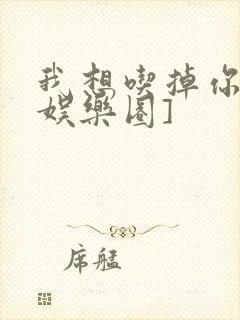 我想喫掉你
娱樂圈]
席艋